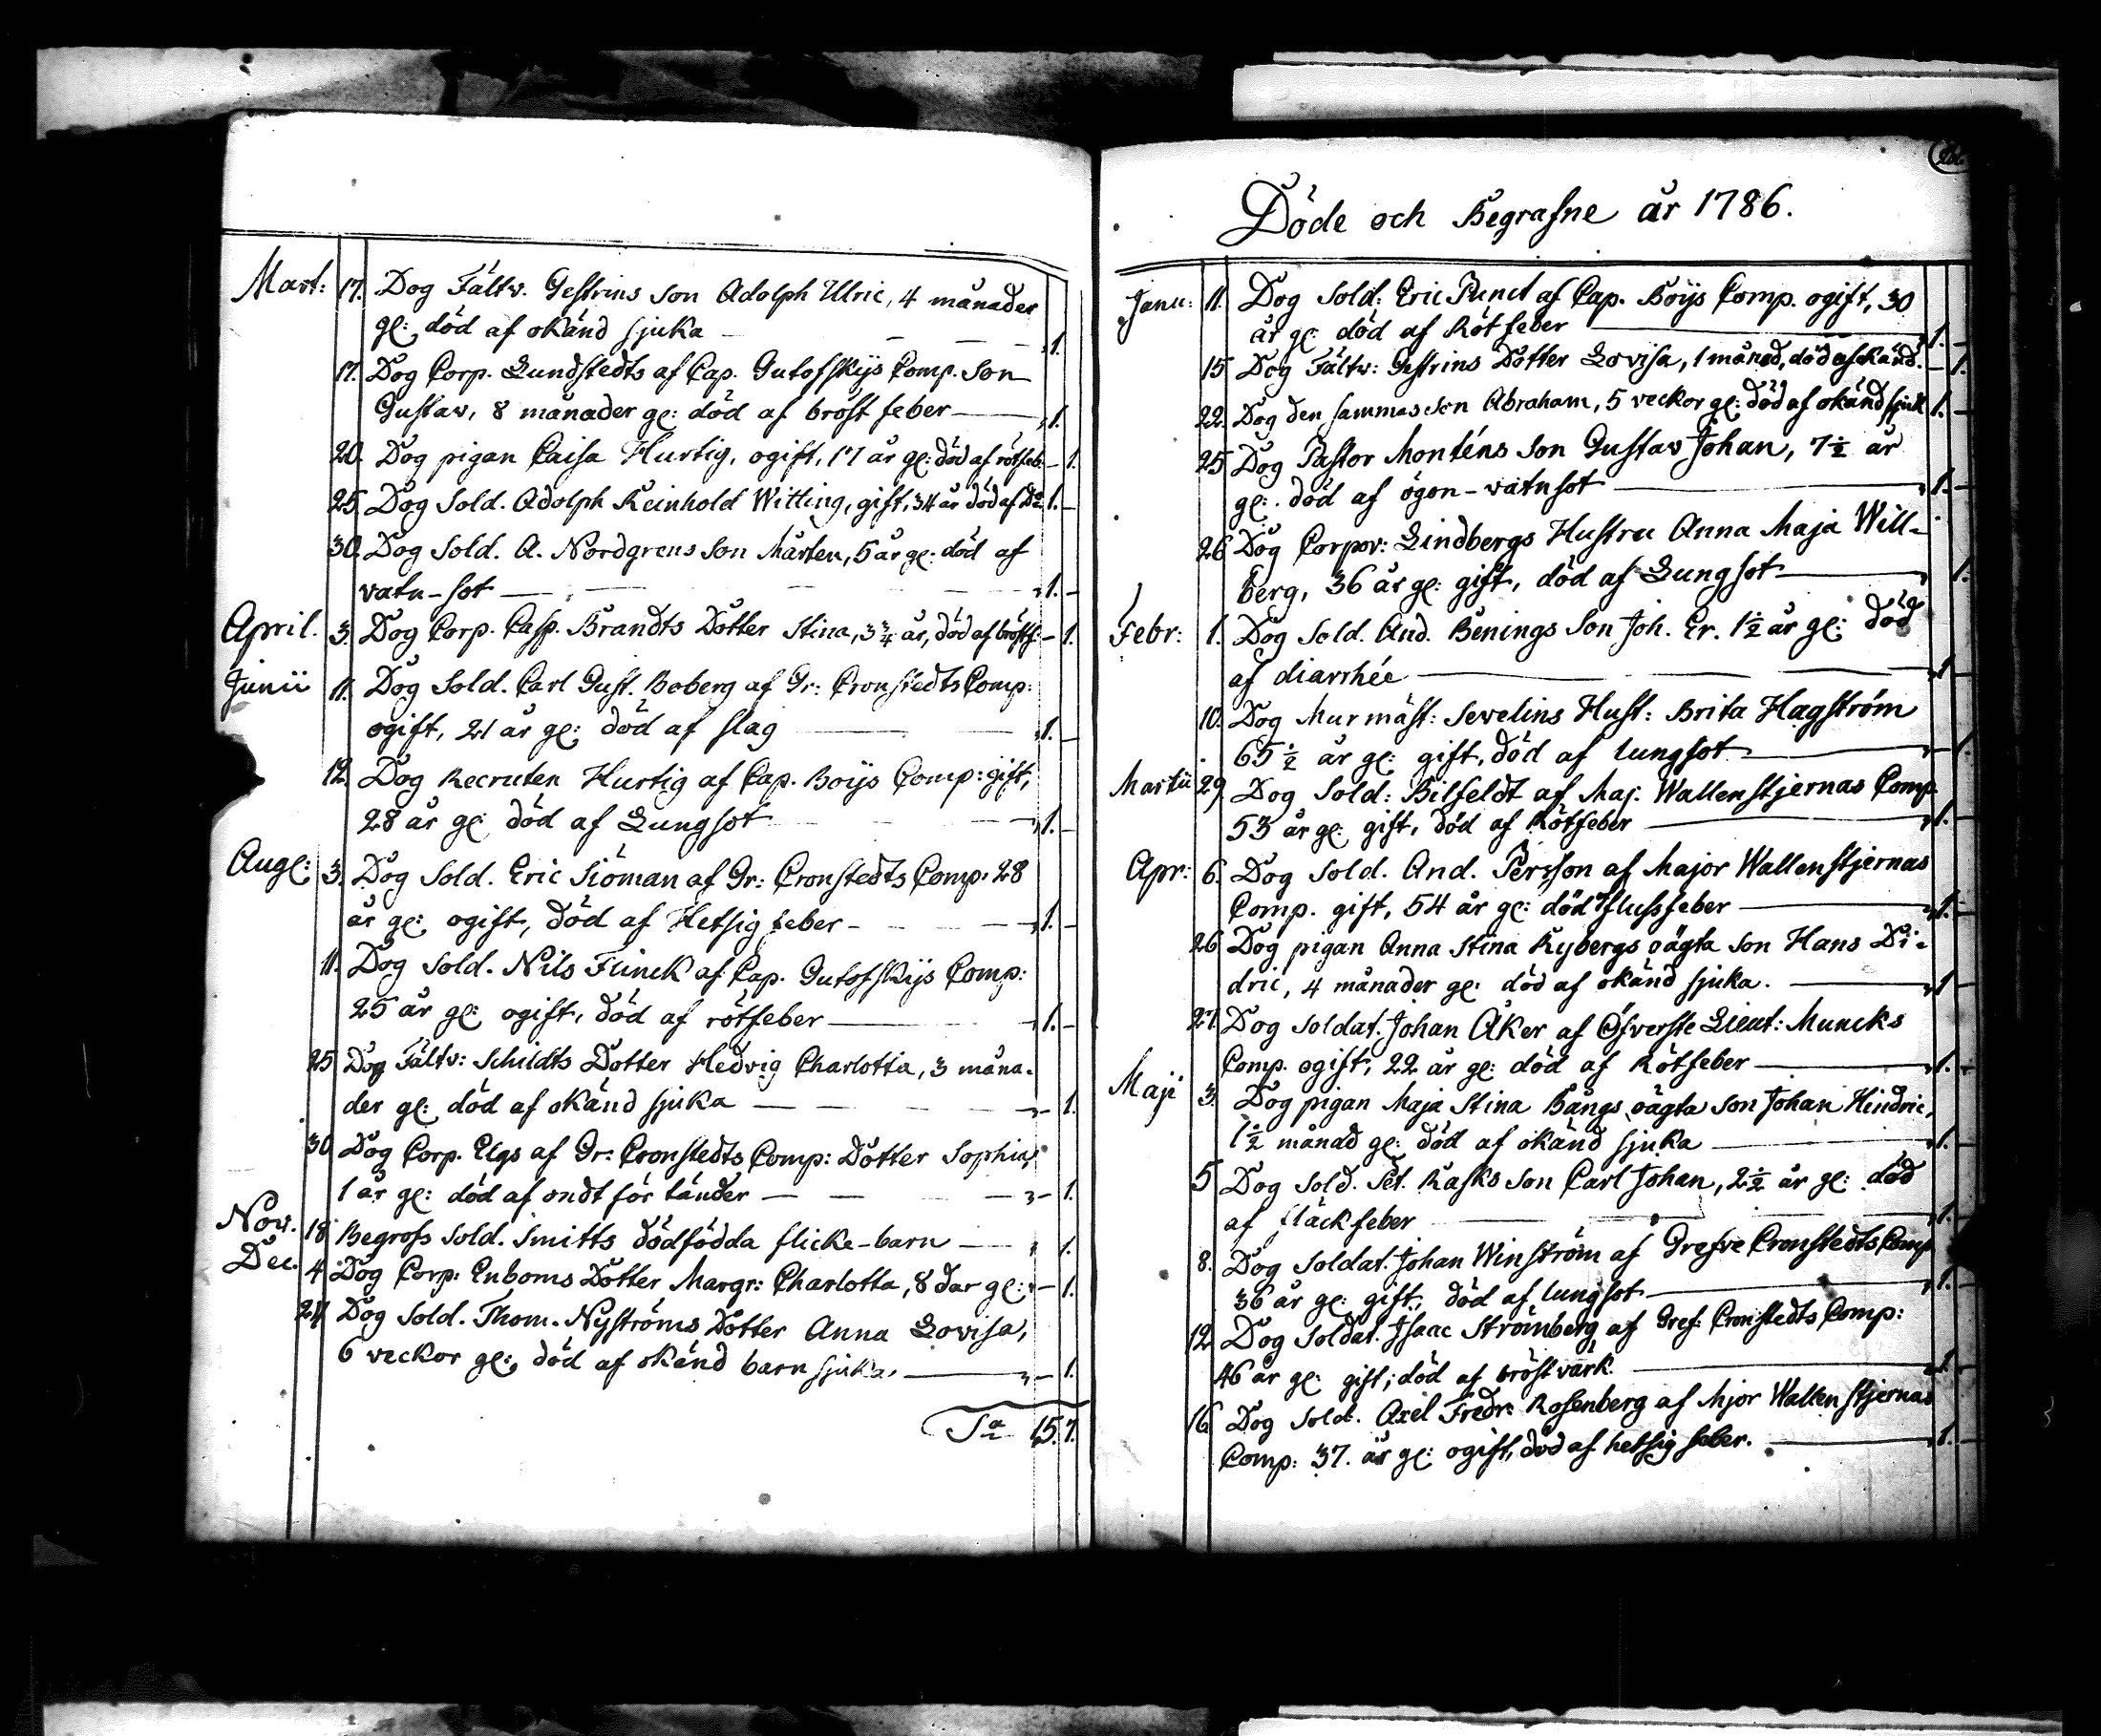 Mart: 17. Dog Fältv. Gestrins Son Adolph Ulric, 4 månader
gl: död af okänd sjuka 1.
17. Dog Corp. Lundstedts af Cap. Gutofskijs Comp. Son
Gustaw, 8 månader gl: död af bröst feber 1.
20. Dog pigan Caisa Hurtig, ogift, 17 år gl: död af rötfeb. 1.
25. Dog Sold. Adolph Reinhold Witting, gift, 34 år död af Do 1.
30. Dog Sold. A. Nordgrens Son Mårten, 5 år gl: död af
vatu-sot 1.
April. 3. Dog Corp. Casp. Brandts Dotter Stina, 3 3/4 år, död af bröstf. 1.
Junii 11. Dog Sold. Carl Gust. Boberg af Gr: Cronstedts Comp:
ogift, 21 år gl: död af slag 1.
12. Dog Recruten Hurtig af Cap. Boijs Comp: gift,
28 år gl: död af Lungsot 1.
Aug: 3. Dog Sold. Eric Siöman af Gr: Cronstedts Comp: 28
år gl: ogift, död af Hetsig feber 1.
11. Dog Sold. Nils Flinck af Cap. Gutofskijs Comp:
25 år gl: ogift, död af rötfeber 1.
25 Dog Fältv: Schildts Dotter Hedvig Charlotta, 3 måna-
der gl: död af okänd sjuka 1.
30 Dog Corp. Elgs af Gr: Cronstedts Comp: Dotter Sophia,
1 år gl: död af ondt för tänder 1.
Nov. 18 Begrofs Sold. Smitts dödfödda flicke-barn 1.
Dec. 4 Dog Corp: Enboms Dotter Margr: Charlotta, 8 dar gl: 1.
24 Dog Sold. Thom. Nyströms Dotter Anna Lovisa,
6 veckor gl: död af okänd barn sjuka. 1.
Sa 15. 7.
Döde och Begrafne år 1786.
Janu: 11. Dog Sold: Eric Punct af Cap. Boijs Comp. ogift, 30
år gl: död af Rötfeber 1.
15 Dog Fältw: Gestrins Dotter Lovisa, 1 månad, död af okänd. 1.
22. Dog den sammas Son Abraham, 5 veckor gl: död af okänd sjuk 1.
25 Dog Pastor Monténs Son Gustav Johan, 7 1/2 år
gl: död af ögon-vatusot 1.
26 Dog Corpor: Lindbergs Hustru Anna Maja Will-
berg, 36 år gl: gift, död af Lungsot 1.
Febr: 1. Dog Sold. And. Benings Son Joh. Er. 1 1/2 år gl: död
af diarrhée 1
10. Dog Murmäst: Sevelins Hust: Brita Hagström
65 1/2 år gl: gift, död af lungsot 1.
Martii 29 Dog Sold: Bilfeldt af Maj. Wallenstjernas Comp
53 år gl: gift, död af Rötfeber 1.
Apr: 6. Dog Sold. And. Persson af Major Wallenstjernas
Comp. gift, 54 år gl: död af flussfeber 1.
26 Dog pigan Anna Stina Rybergs oägta Son Hans Di-
dric, 4 månader gl: död af okänd sjuka. 1
27. Dog Soldat. Johan Åker af Öfverste Lieut: Muncks
Comp. ogift, 22 år gl: död af Rötfeber 1.
Maji 3. Dog pigan Maja Stina Bångs oägta Son Johan Hindric,
1 1/2 månad gl: död af okänd sjuka 1.
5 Dog Sold. Pet. Rasks Son Carl Johan, 2 1/2 år gl: död
af fläckfeber 1.
8. Dog Soldat. Johan Winström af Grefve Cronstedts Comp
36 år gl: gift, död af lungsot 1.
12 Dog Soldat. Isaac Strömberg af Gref: Cronstedts Comp:
46 år gl: gift, död af bröstvärk. 1
16. Dog Sold. Axel Fredr. Rosenberg af Mjor Wallenstjernas
Comp: 37. år gl: ogift, död af hetsig feber. 1.